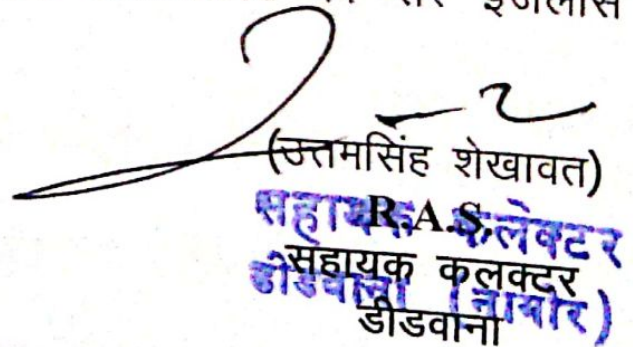 इजलास
(उत्तमसिंह शेखावत)
R.A.S.
सहायक कलेक्टर
सहायक कलक्टर
डीडवाना (नागौर)
डीडवाना